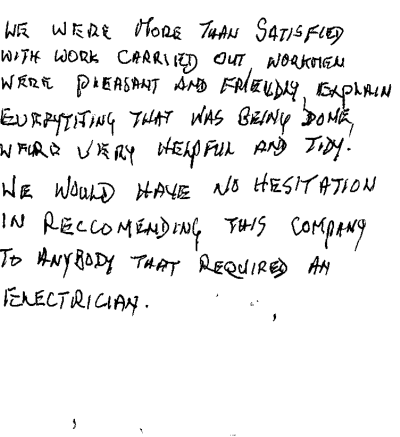 WE WERE MORE THAN SATISFIED
WITH WORK CARRIED OUT, WORKMEN
WERE PLEASANT AND FRIENDLY, EXPLAIN
EVERYTHING THAT WAS BEING DONE,
WERE VERY HELPFUL AND TIDY.
WE WOULD HAVE NO HESITATION
IN RECCOMENDING THIS COMPANY
TO ANYBODY THAT REQUIRED AN
ELECTRICIAN.